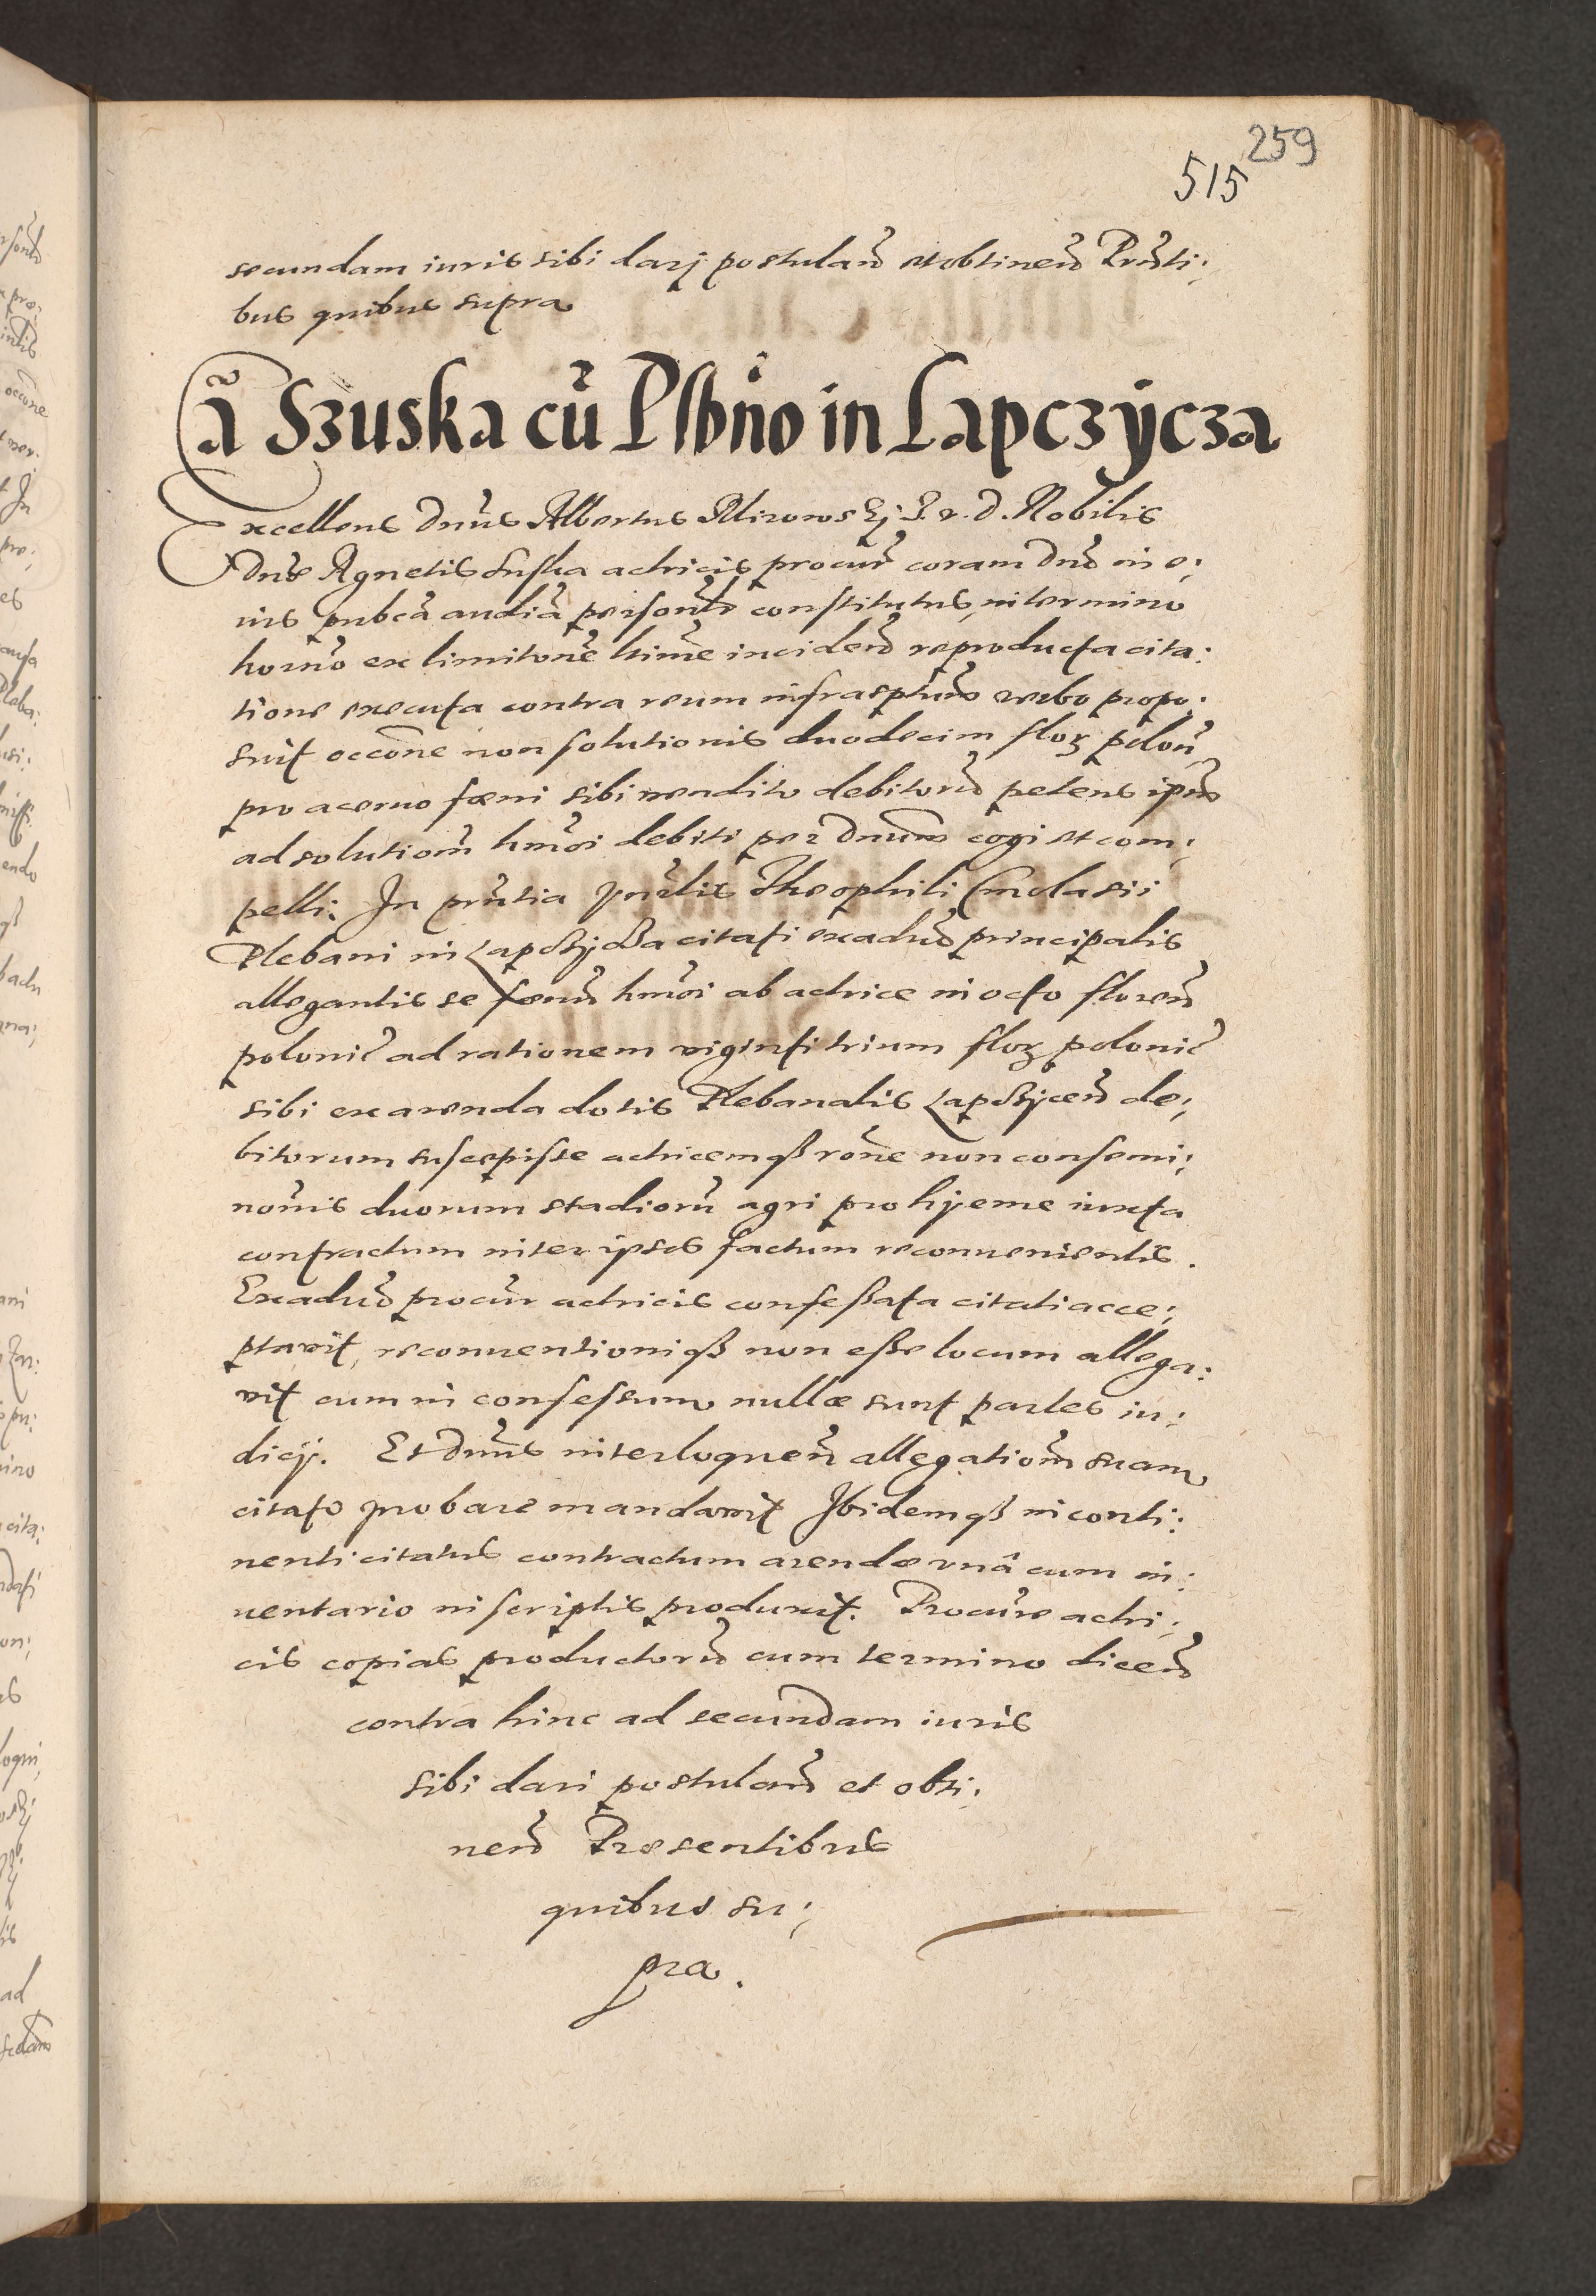 259
515
secundam iuris sibi darj postulan̄ et obtinen̄ Pn̄ti:
bus quibus supra
Cā Szuska cū Plbn̄o in Lapczÿcza
Excellens Dn̄us Albertus J. v. d. Nobilis
Dn̄e Agnetis Suska actricis procur̄ coram Dn̄o in e:
ius pub̄ca audiā persona̅l̅r constitutus, in termino
horn̄o ex limitōne ltīme inciden̄ reproducta cita:
tione executa contra reum infrascptum verbo propo:
suit occōne non solutionis duodecim flor̨ polon̄
pro aceruo fœni sibi vendito debitorū petens ipsū
ad solutionē hmōi debiti per Dnum cogi et com:
pelli: In pn̄tia Theophili Smolasii
Plebani in Lapczÿcza citati ex aduō principalis
allegantis se fœnū hmōi ab actrice in octo floren̄
polonic̄ ad rationem viginti trium flor̨ polonic̄
sibi ex arenda dotis Plebanalis Lapczÿcen̄ de:
bitorum suscepisse actricemqꝫ rōne non consemi:
nōnis duorum stadiorū agri pro hÿeme iuxta
contractum inter ipsos factum reconuenientis.
Ex aduō procur̄ actricis confessata citati acce:
ptauit, reconuentioniqꝫ non esse locum allega:
vit cum in confessum nullæ sunt partes iu:
dicij. Et Dn̄us interloquen̄ allegationē suam
citato probare mandavit Ibidemqꝫ in conti:
nenti citatus contractum arendæ vnâ cum in:
uentario in scriptis produxit. Procur̄e actri:
cis copias productorū cum termino dicen̄
contra hinc ad secundam iuris
sibi dari postulan̄ et obti:
nen̄ Præsentibus
quibus su:
pra.